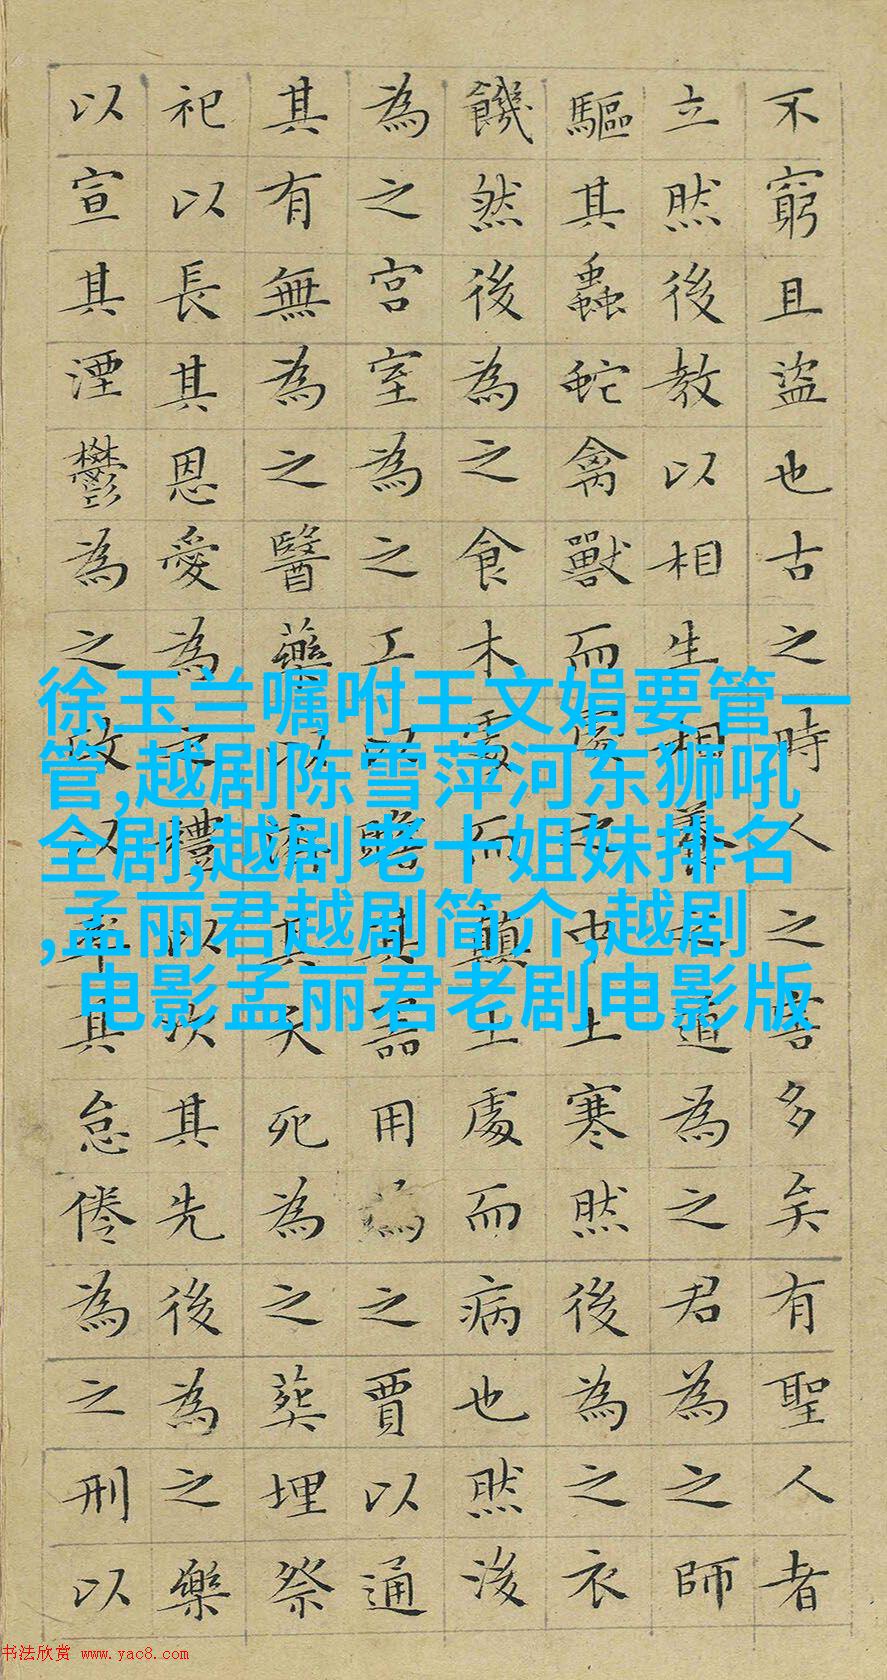 徐玉兰嘱咐王文娟要管一
管,越剧陈雪萍河东狮吼
全剧,越剧老十姐妹排名
,孟丽君越剧简介,越剧
电影孟丽君老剧电影版
不窮且盜也古之時人之害多矣有聖人者
立然後教以相生相養之道為之君為之師
驅其蟲蛇禽獸而處之中土寒然後為之衣
饑然後為之食木處而顛土處而病也然後
為之宮室為之工以贍其器用為之賈以通
其有無為之醫藥以濟其夭死為之葬埋祭
祀以長其恩愛為之禮以次其先後為之樂
以宣其湮鬱為之政以率其怠倦為之刑以
书法欣赏 www.yac8.com